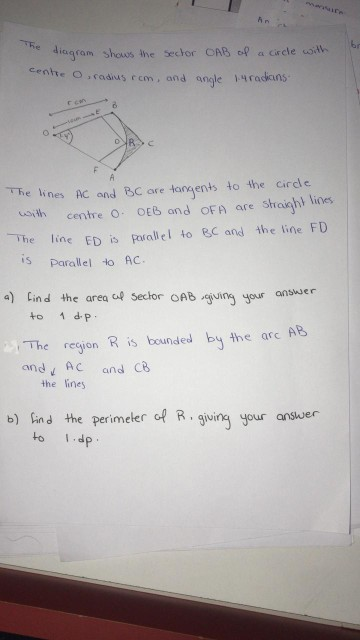 The diagram shows the sector OAB of a circle with
centre O, radius r cm, and angle 1.4 radians.
r cm
B
E
O
1.4
D
R
C
F
A
The lines AC and BC are tangents to the circle
with centre O. OEB and OFA are straight lines
The line ED is parallel to BC and the line FD
is parallel to AC.
a) find the area of sector OAB, giving your answer
to 1 d.p.
The region R is bounded by the arc AB
and the lines AC and CB
b) find the perimeter of R, giving your answer
to 1.dp.
An